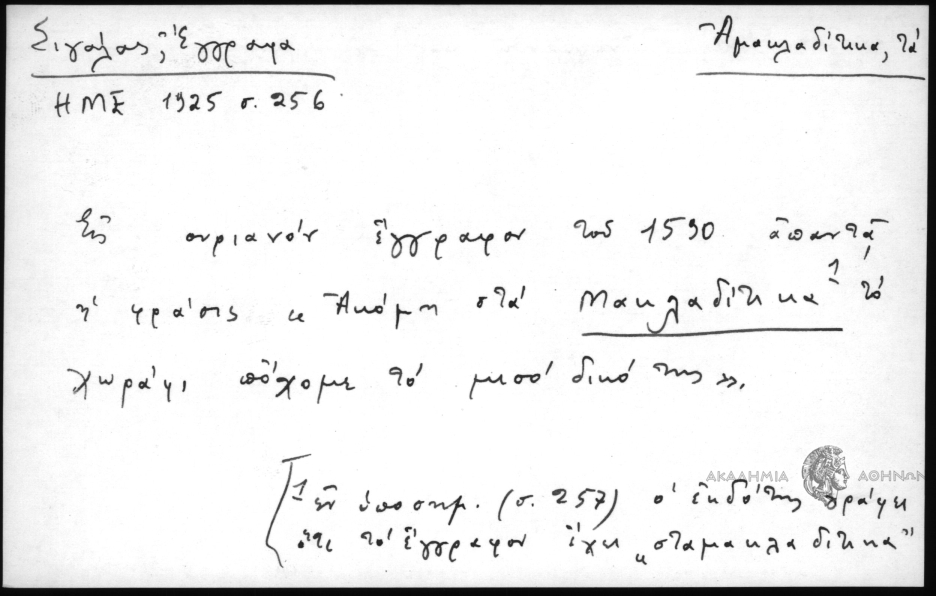 Σιγάλας, Ἔγγραφα
Ἀμακλαδίτικα, τά
ΗΜΣ 1925 σ. 256
Εἰς συριανόν ἔγγραφον τοῦ 1590 ἀπαντᾷ
ἡ φράσις « Ἀκόμη στά Μακλαδίτικα¹ τό
χωράφι πὄχομε τό μισό δικό της ».
[¹ ἐν ὑποσημ. (σ. 257) ὁ ἐκδότης γράφει
ὅτι τό ἔγγραφον ἔχει „σταμακλαδίτικα"
ΑΚΑΔΗΜΙΑ ΑΘΗΝΩΝ